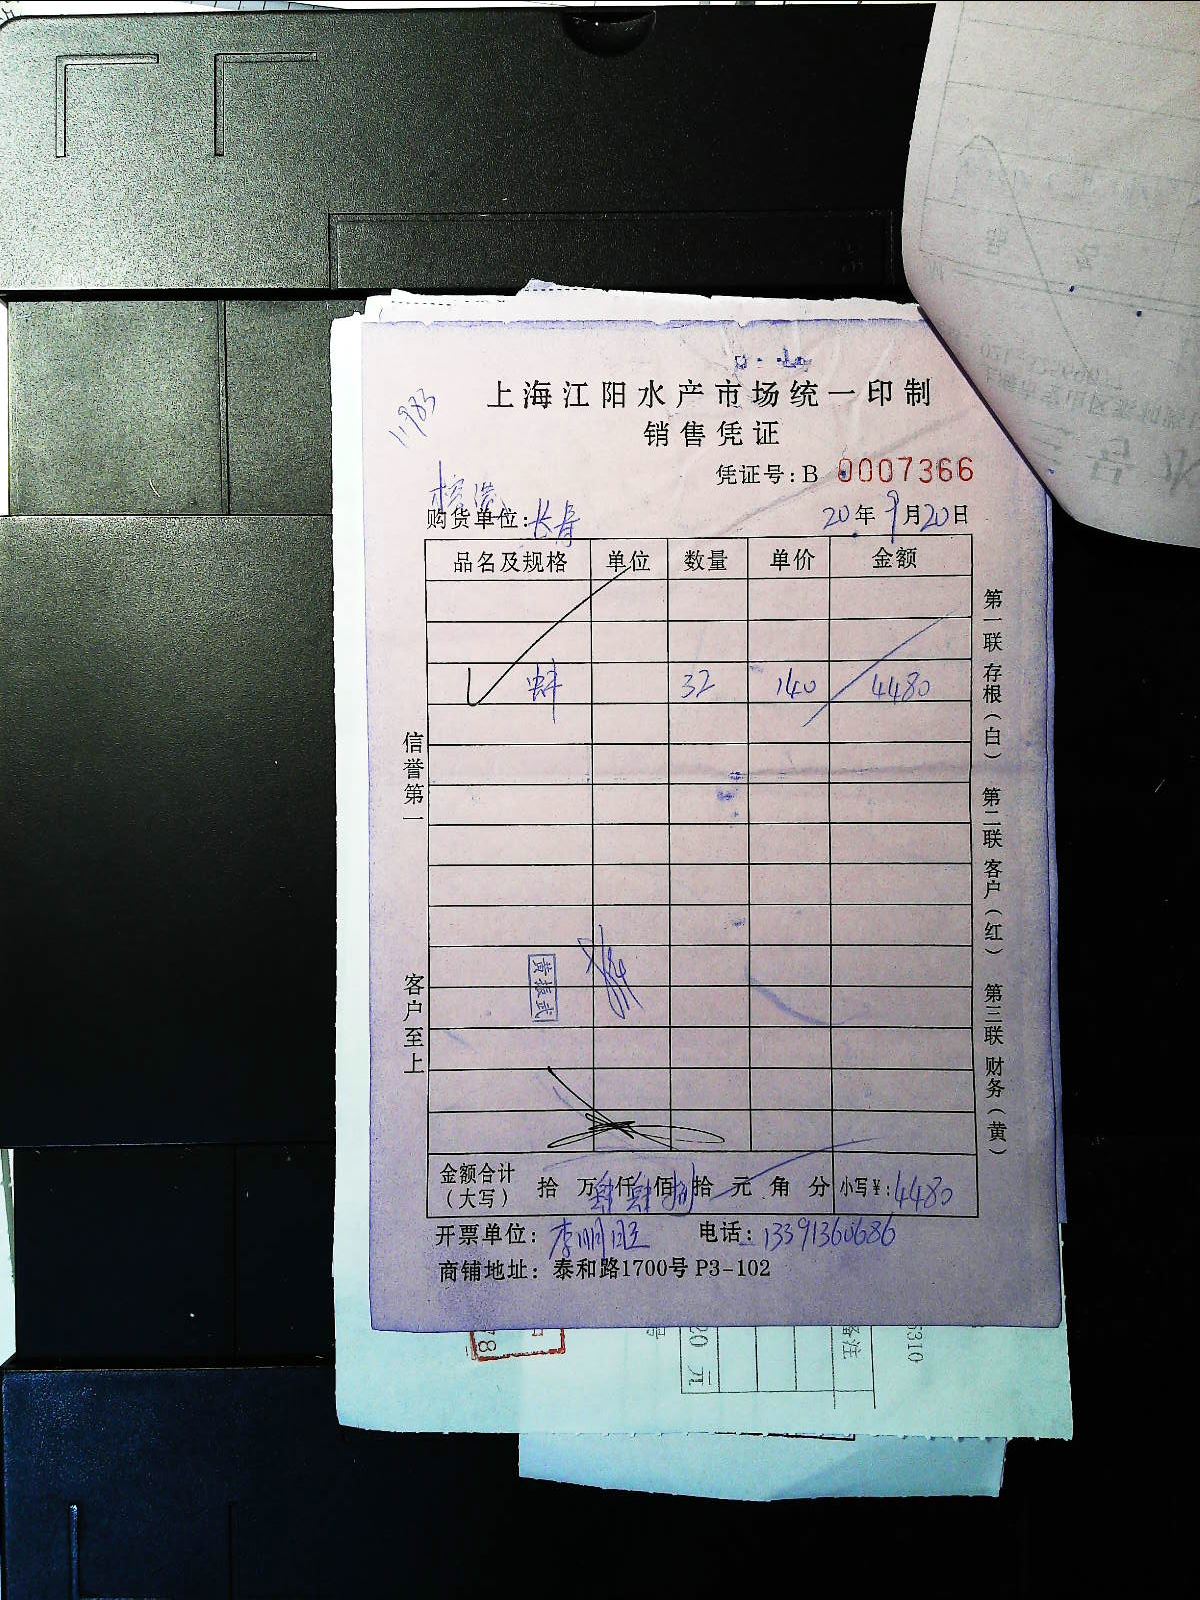 11983
上海江阳水产市场统一印制
销售凭证
凭证号:B 0007366
购货单位:长寿 20年9月20日
品名及规格 单位 数量 单价 金额
蚌 32 140 4480
信誉第一
客户至上
第一联 存根(白) 第二联 客户(红) 第三联 财务(黄)
黄振武
金额合计(大写) 拾 万肆仟肆佰捌拾 元 角 分 小写¥:4480
开票单位:李明旺 电话:13391360686
商铺地址:泰和路1700号 P3-102
20 元
备注
6310